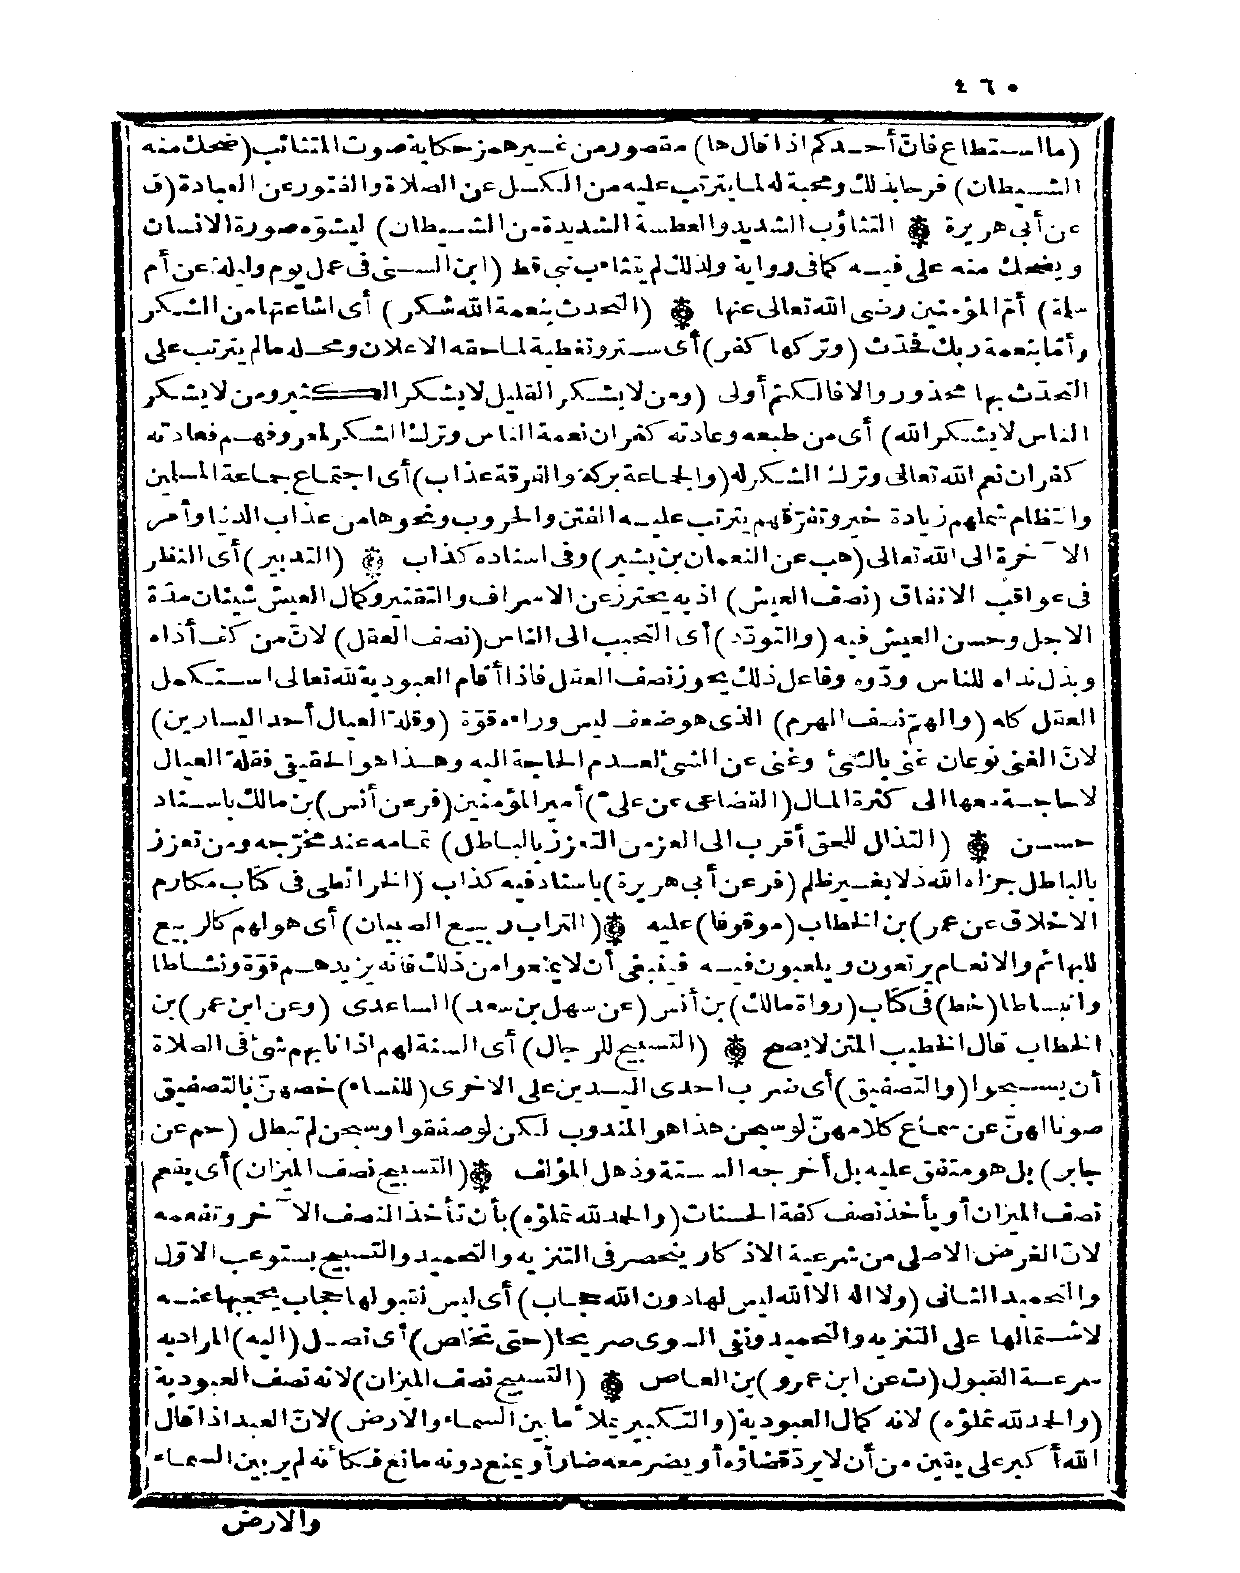 ٤٦٠
(ما استطاع فانّ أحدكم اذا قال ها) مقصور من غير همز حكاية صوت المتثائب (ضحك منه
الشيطان) فرحا بذلك ومحبة له لما يترتب عليه من الكسل عن الصلاة والفتور عن العبادة (ق
عن أبى هريرة ۞ التثاؤب الشديد والعطسة الشديدة من الشيطان) ليشوّه صورة الانسان
ويضحك منه على فيه كما فى رواية ولذلك لم يتثاءب نبى قط (ابن السنى فى عمل يوم وليلة عن أم
سلمة) أمّ المؤمنين رضى الله تعالى عنها ۞ (التحدث بنعمة الله شكر) أى اشاعتها من الشكر
وأمّا بنعمة ربك فحدّث (وتركها كفر) أى ستر وتغطية لما حقه الاعلان ومحله ما لم يترتب على
التحدّث بها محذور والا فالكتم أولى (ومن لا يشكر القليل لا يشكر الكثير ومن لا يشكر
الناس لا يشكر الله) أى من طبعه وعادته كفران نعمة الناس وترك الشكر لمعروفهم فعادته
كفران نعم الله تعالى وترك الشكر له (والجماعة بركة والفرقة عذاب) أى اجتماع جماعة المسلمين
وانتظام شملهم زيادة خير وتفرّقهم يترتب عليه الفتن والحروب ونحوها من عذاب الدنيا وأمر
الآخرة الى الله تعالى (هب عن النعمان بن بشير) وفى اسناده كذاب ۞ (التدبير) أى النظر
فى عواقب الانفاق (نصف العيش) اذ به يحترز عن الاسراف والتقتير وكمال العيش شيئان مدّة
الاجل وحسن العيش فيه (والتودّد) أى التحبب الى الناس (نصف العقل) لانّ من كف أذاه
وبذل نداه للناس ودّوه وفاعل ذلك يحوز نصف العقل فاذا أقام العبودية لله تعالى استكمل
العقل كله (والهمّ نصف الهرم) الذى هو ضعف ليس وراءه قوّة (وقلة العيال أحد اليسارين)
لانّ الغنى نوعان غنى بالشئ وغنى عن الشئ لعدم الحاجة اليه وهذا هو الحقيقى فقلة العيال
لا حاجة معها الى كثرة المال (القضاعى عن علىّ) أمير المؤمنين (فر عن أنس) بن مالك باسناد
حسن ۞ (التذلل للحق أقرب الى العز من التعزز بالباطل) تمامه عند مخرّجه ومن تعزز
بالباطل جزاه الله ذلا بغير ظلم (فر عن أبى هريرة) باسناد فيه كذاب (الخرائطى فى كتاب مكارم
الاخلاق عن عمر) بن الخطاب (موقوفا) عليه ۞ (التراب ربيع الصبيان) أى هو لهم كالربيع
للبهائم والانعام يرتعون ويلعبون فيه فينبغى أن لا يمنعوا من ذلك فانه يزيدهم قوّة ونشاطا
وانبساطا (خط) فى كتاب (رواة مالك) بن أنس (عن سهل بن سعد) الساعدى (وعن ابن عمر) بن
الخطاب قال الخطيب المتن لا يصح ۞ (التسبيح للرجال) أى السنة لهم اذا نابهم شئ فى الصلاة
أن يسبحوا (والتصفيق) أى ضرب احدى اليدين على الاخرى (للنساء) خصهنّ بالتصفيق
صونا لهنّ عن سماع كلامهنّ لو سبحن هذا هو المندوب لكن لو صفقوا وسبحن لم تبطل (حم عن
جابر) بل هو متفق عليه بل أخرجه الستة وذهل المؤلف ۞ (التسبيح نصف الميزان) أى يفعم
نصف الميزان أو يأخذ نصف كفة الحسنات (والحمد لله تملؤه) بأن تأخذ النصف الآخر وتفعمه
لانّ الغرض الاصلى من شرعية الاذكار ينحصر فى التنزيه والتحميد والتسبيح يستوعب الاوّل
والتحميد الثانى (ولا اله الا الله ليس لها دون الله حجاب) أى ليس لقبولها حجاب يحجبها عنه
لاشتمالها على التنزيه والتحميد ونفى السوى صريحا (حتى تخلص) أى تصل (اليه) المراد به
سرعة القبول (ت عن ابن عمرو) بن العاص ۞ (التسبيح نصف الميزان) لانه نصف العبودية
(والحمد لله تملؤه) لانه كمال العبودية (والتكبير يملأ ما بين السماء والارض) لانّ العبد اذا قال
الله أكبر على يقين من أن لا يردّ قضاؤه أو يضر معه ضار أو يمنع دونه مانع فكأنه لم ير بين السماء
والارض